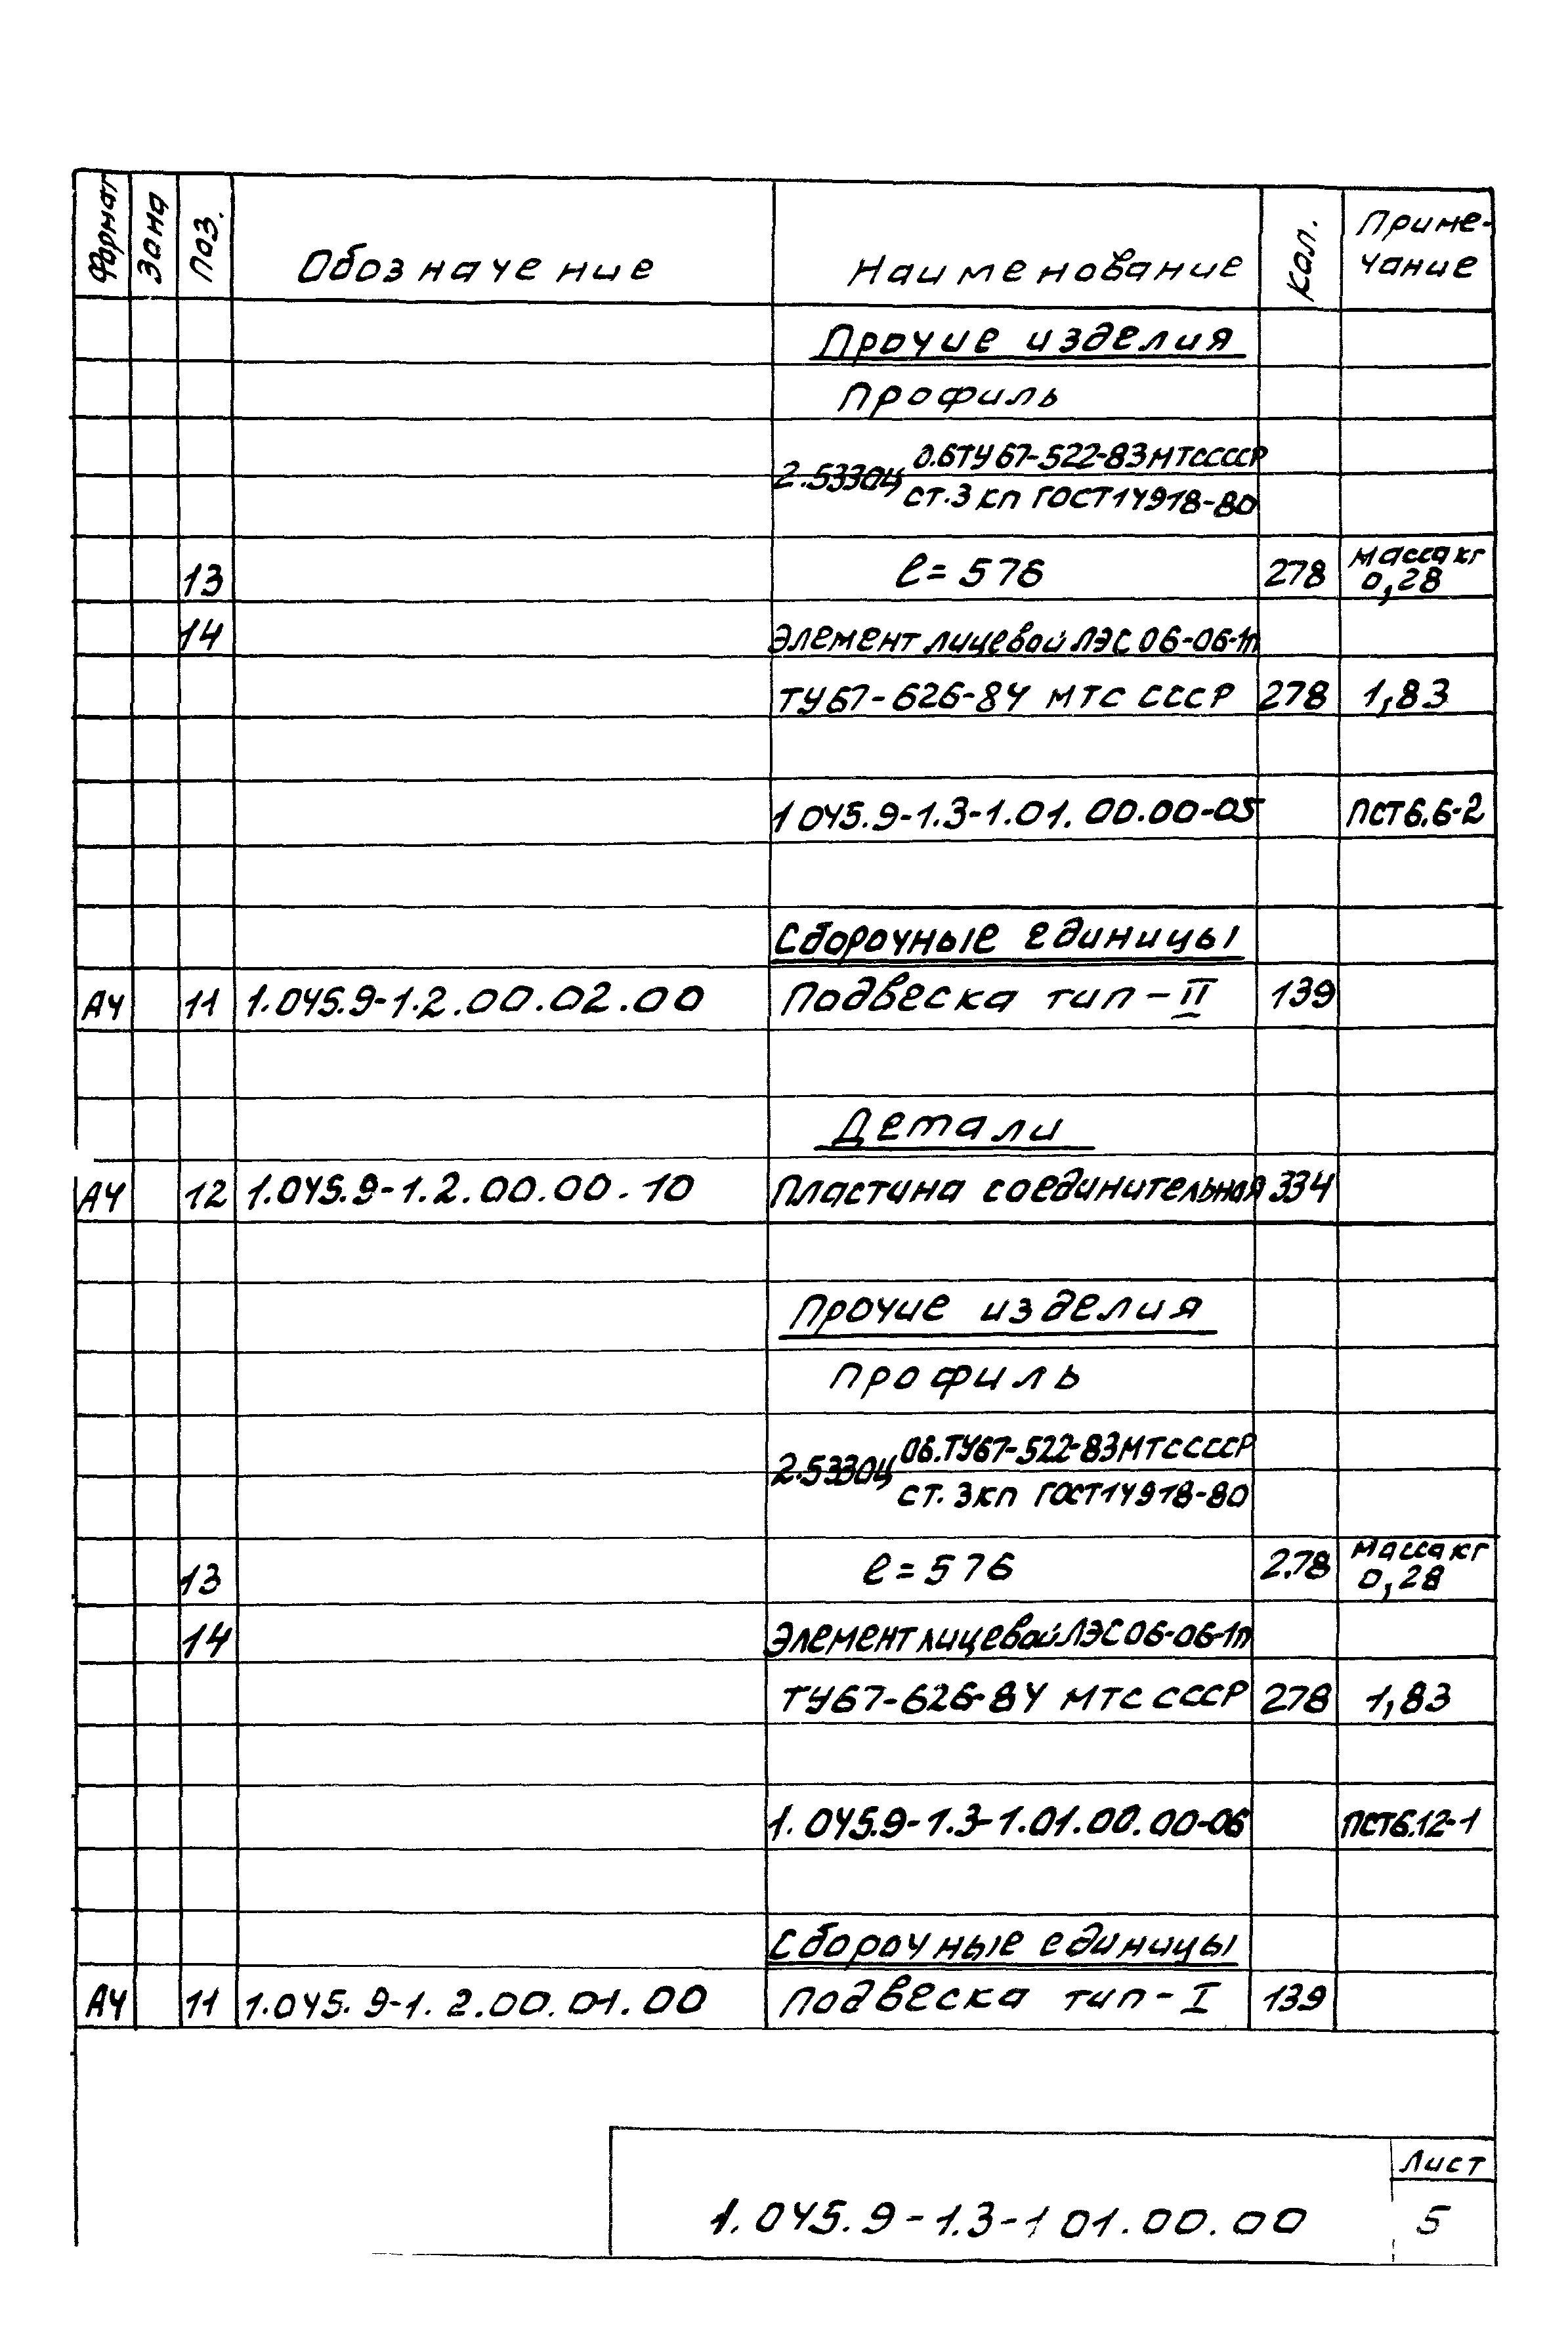 Формат Зона Поз. Обозначение Наименование Кол. Приме-
чание
Прочие изделия
Профиль
2.53304 0.6ТУ67-522-83МТСССССР
ст.3кп ГОСТ14918-80
13 l=576 278 масса кг
0,28
14 Элемент лицевой ЛЭС 06-06-1п
ТУ67-626-84 МТС СССР 278 1,83
1 045.9-1.3-1.01.00.00-05 ПСТ6.6-2
Сборочные единицы
А4 11 1.045.9-1.2.00.02.00 Подвеска тип-II 139
Детали
А4 12 1.045.9-1.2.00.00.10 Пластина соединительная 334
Прочие изделия
Профиль
2.53304 06.ТУ67-522-83МТССССР
ст.3кп ГОСТ14918-80
13 l=576 2.78 масса кг
0,28
14 Элемент лицевой ЛЭС 06-06-1п
ТУ67-626-84 МТС СССР 278 1,83
1.045.9-1.3-1.01.00.00-06 ПСТ6.12-1
Сборочные единицы
А4 11 1.045.9-1.2.00.01.00 Подвеска тип-I 139
Лист
1.045.9-1.3-1 01.00.00 5